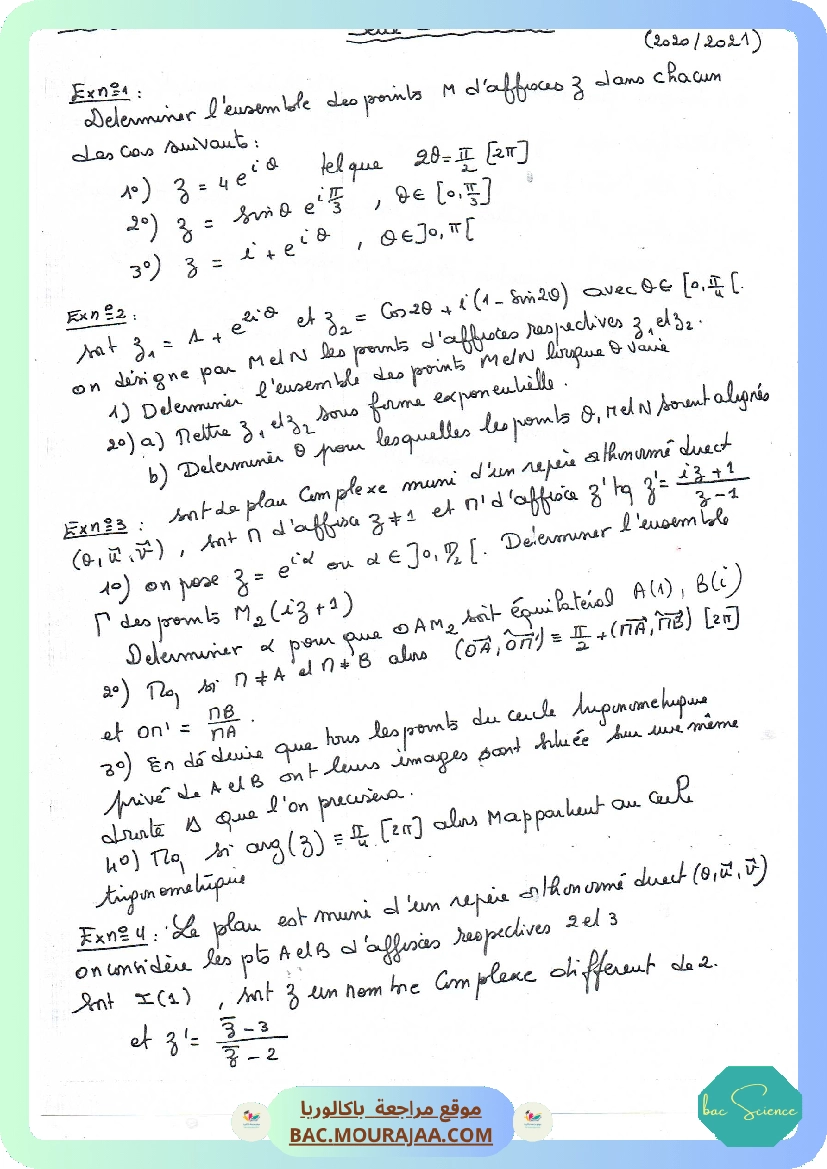 (2020/2021)
Exn°1 :
Determiner l'ensemble des points M d'affixes z dans chacun
des cas suivants :
1°) z = 4e^{iθ} tel que 2θ = π/2 [2π]
2°) z = sinθ e^{iπ/3} , θ ∈ [0, π/3]
3°) z = i + e^{iθ} , θ ∈ ]0, π[
Exn°2 :
soit z₁ = 1 + e^{2iθ} et z₂ = Cos2θ + i(1 - Sin2θ) avec θ ∈ [0, π/4 [.
on désigne par M et N les points d'affixes respectives z₁ et z₂.
1) Determiner l'ensemble des points M et N lorsque θ varie
2°) a) Mettre z₁ et z₂ sous forme exponentielle.
b) Determiner θ pour lesquelles les points O, M et N soient alignés
Exn°3 : soit le plan Complexe muni d'un repère orthonormé direct
(O, u⃗, v⃗) , soit M d'affixe z ≠ 1 et M' d'affixe z' tq z' = (iz + 1)/(z - 1)
1°) on pose z = e^{iα} ou α ∈ ]0, π/2 [. Determiner l'ensemble
Γ des points M₂ (iz + 1)
Determiner α pour que OAM₂ soit équilatéral A(1), B(i)
2°) Mq si M ≠ A et M ≠ B alors (OA⃗, OM'⃗) ≡ π/2 + (MA⃗, MB⃗) [2π]
et OM' = MB/MA .
3°) En déduire que tous les points du cercle trigonometrique
privé de A et B ont leurs images sont située sur une même
droite Δ que l'on precisera.
4°) Mq si arg(z') ≡ π/4 [2π] alors M appartient au cercle
trigonometrique
Exn°4 : Le plan est muni d'un repère orthonormé direct (O, u⃗, v⃗)
on considère les pts A et B d'affixes respectives 2 et 3
Soit I(1) , soit z un nombre Complexe different de 2.
et z' = (z̄ - 3)/(z̄ - 2)
موقع مراجعة باكالوريا
BAC.MOURAJAA.COM
bac Science